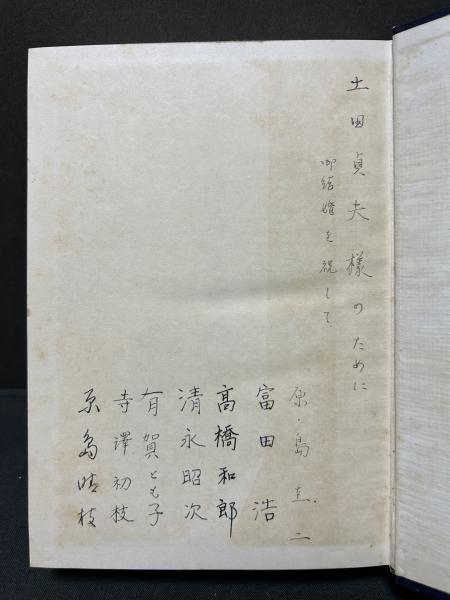 土田貞夫様のために
御結婚を祝して、
原・島 圭二
富田 浩
高橋和郎
清永昭次
有賀とも子
寺澤初枝
原島晴枝